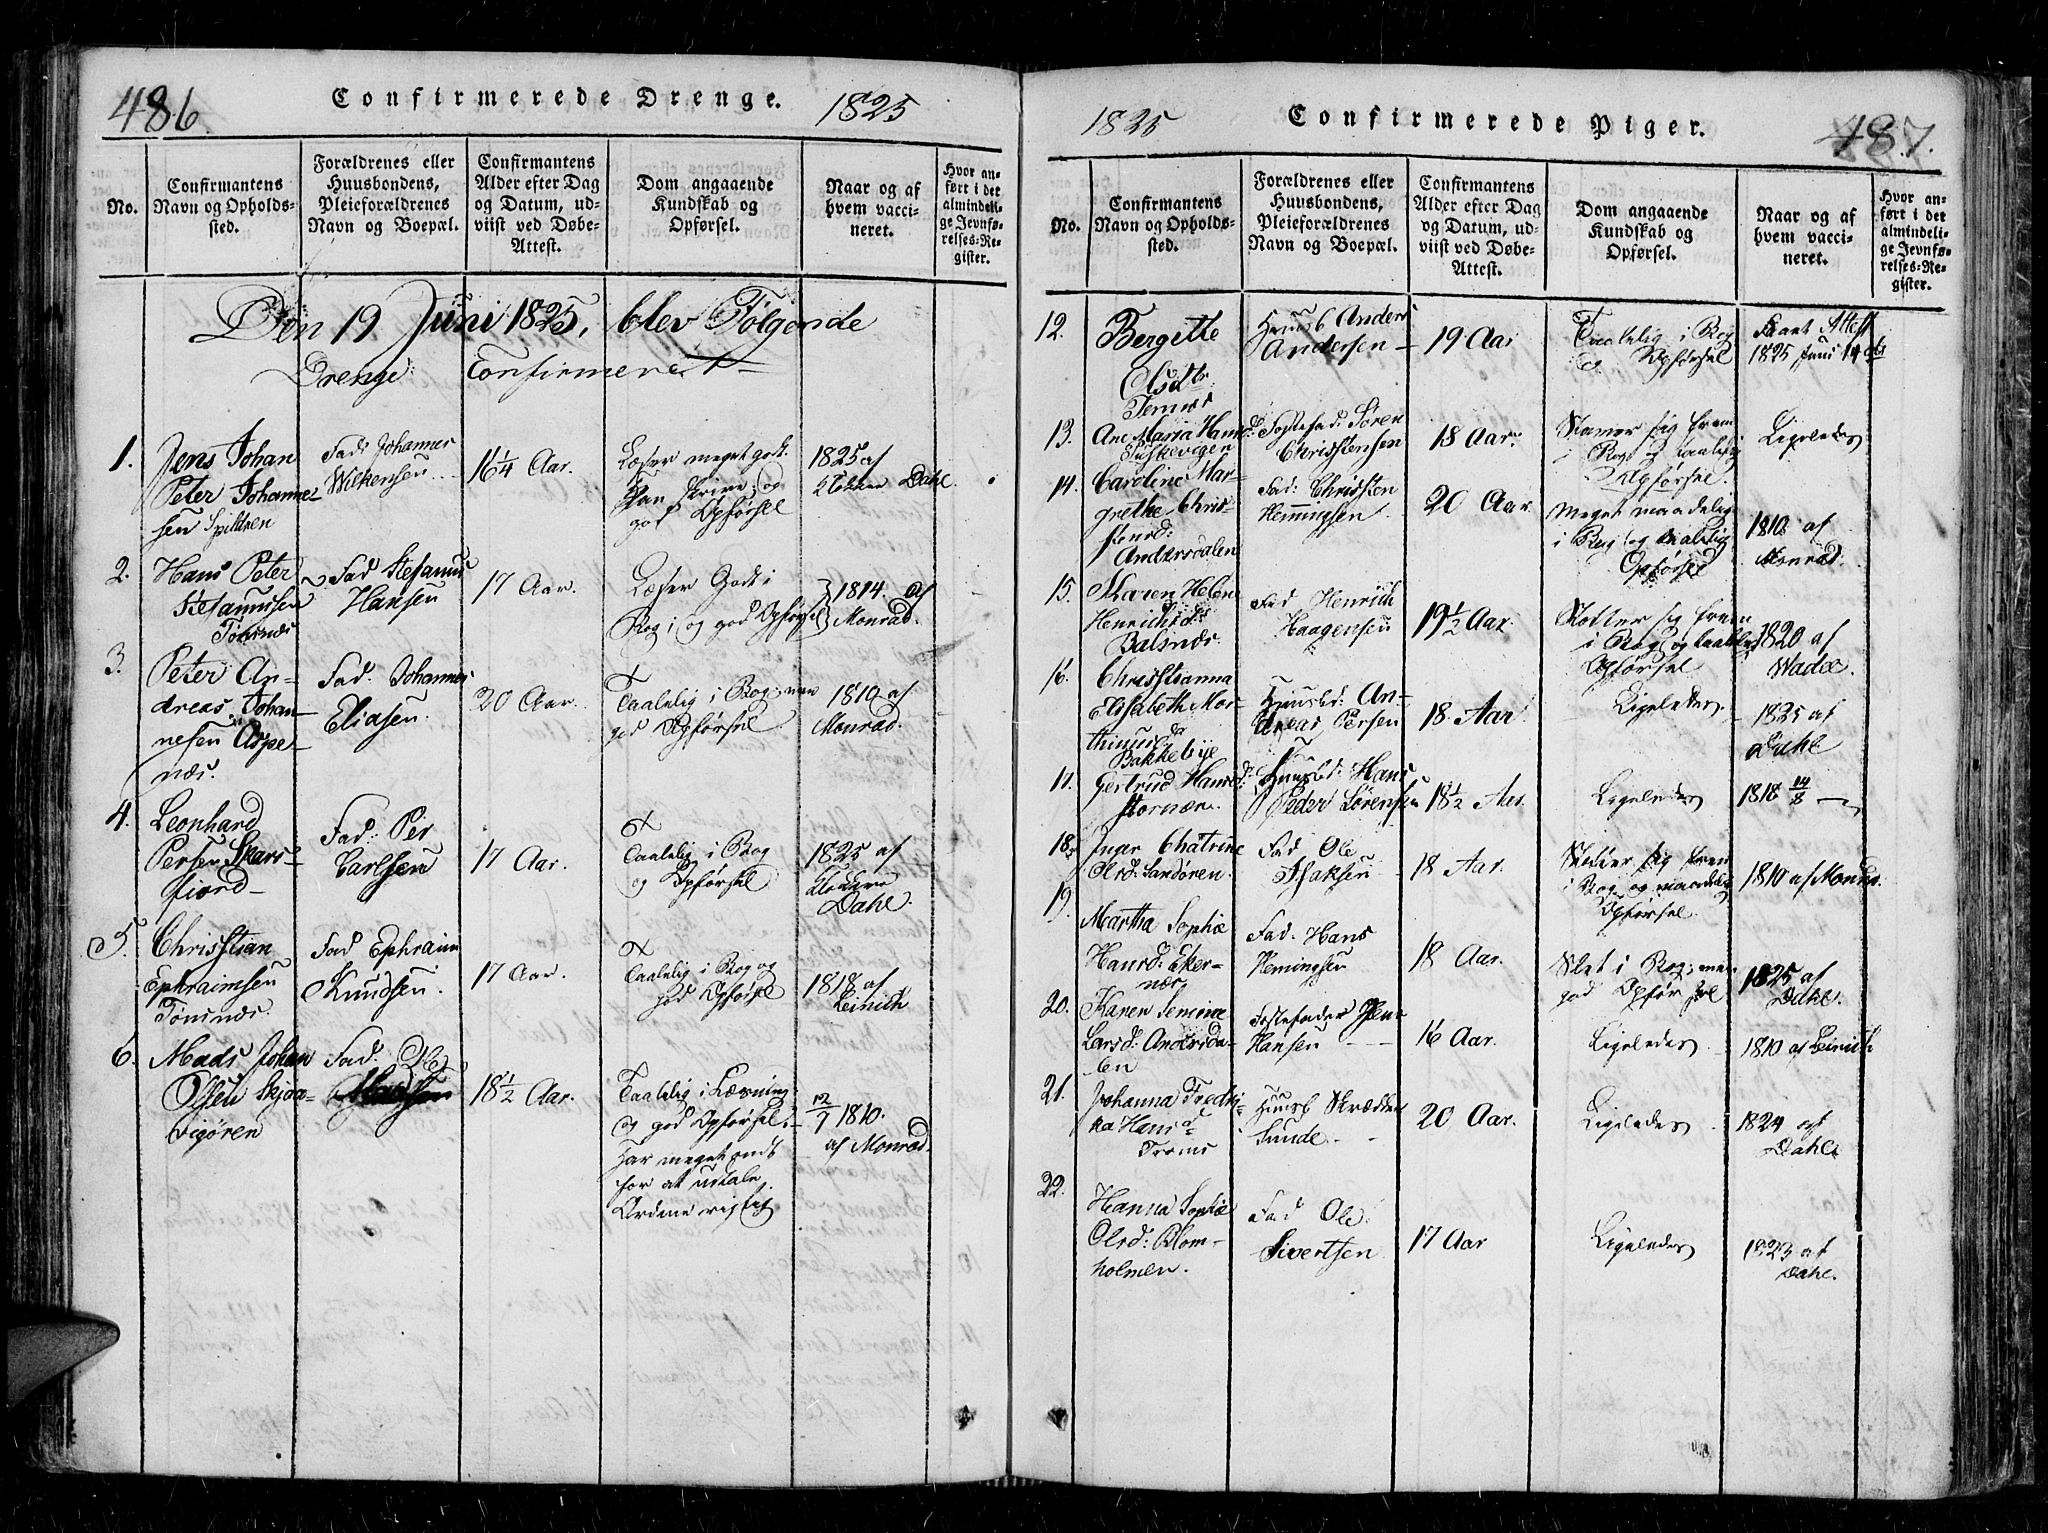 486.
Confirmerede Drenge.
1825
No.
Confirmantens
Navn og Opholds-
sted.
Forældrenes eller
Huusbondens,
Pleieforældrenes
Navn og Boepæl.
Confirmantens
Alder efter Dag
og Datum, ud-
viist ved Døbe-
Attest.
Dom angaaende
Kundskab og
Opførsel.
Naar og af
hvem vacci-
neret.
Hvor an-
ført i det
almindeli-
ge Jevnfø-
relses-Re-
gister.
Den 19 Juni 1825, blev Følgende
Drenge Confirmeret
1.
Jens Johan
Peter Johanne-
sen Spildren
Fad: Johannes
Wilkensen
16 1/4 Aar.
Læser meget godt.
Kan skrive; og
god Opførsel
1825 af
Klokker Dahl.
2.
Hans Peter
Stefanussen
Tønsnæs
Fad Stefanus
Hansen
17 Aar.
Læser Godt i
Bog; og god Opførsel
1814. af
Monrad.
3.
Peter An-
dreas Johan-
nesen Aspe-
næs.
Fad. Johannes
Eliasen.
20 Aar.
Taalelig i Bog; men
god Opførsel
1810 af
Monrad.
4.
Leonhard
Persen Skars-
fiord
Fad: Per
Carlsen
17 Aar.
Taalelig i Bog
og Opførsel
1825 af
Klokkere
Dahl.
5.
Chrisstian
Ephraimsen
Tønsnæs.
Fad Ephraim
Knudsen.
17 Aar.
Taalelig i Bog og
god Opførsel
1818 af
Leinich
6.
Mads Johan
Olsen Skjaa-
vigøren
Fad: Ole
Madsen
18 1/2 Aar.
Taalelig i Læsning
og god Opførsel.
Har meget ondt
for at udtale
Ordene rigtigt
12/7 1810.
af Monrad.
1825
Confirmerede Piger.
487.
No.
Confirmantens
Navn og Opholds-
sted.
Forældrenes eller
Huusbondens,
Pleieforældrenes
Navn og Boepæl.
Confirmantens
Alder efter Dag
og Datum, ud-
viist ved Døbe-
Attest.
Dom angaaende
Kundskab og
Opførsel.
Naar og af
hvem vacci-
neret.
Hvor an-
ført i det
almindeli-
ge Jevnfø-
relses-Re-
gister.
12.
Bergitte
Olsdtr
Temnes
Huusb Anders
Andersen
19 Aar
Taalelig i Bog
og Opførsel
Attest
1825 Juni 14de
13.
Ane Maria Hansd:
Fiskevigen
Fostefad: Søren
Chrisstensen
18 Aar.
Stamer sig frem
i Bog og taalelig
Opførsel.
Ligeledes
14.
Caroline Mar-
grethe Chris-
stensd:
Andersdalen
Fad: Chrissten
Hemingsen
20 Aar
Meget maadelig
i Bog og taalelig
Opførsel
1810 af
Monrad.
15.
Maren Helene
Henrichsd:
Balsnæs
Fad Henrich
Haagensen
19 1/2 Aar
Stotter sig frem
i Bog og taalelig
Opførsel
1820 af
Wadel
16.
Chrisstianna
Elisabeth Mor-
thinusd
Bakkebye
Huusbd: An-
dreas Persen
18 Aar
Ligeledes
1825 af
Dahl
17.
Gertrud Hansd:
Stornæs.
Huusbd: Hans
Peder Sørensen
18 1/2 Aar.
Ligeledes
1818 14/8
18.
Ingar Chatrine
Olsd: Sandøren.
Fad Ole
Isaksen
18 Aar.
Stotter sig frem
i Bog og maadelig
Opførsel.
1810 af Monrad.
19.
Martha Sophie
Hansd: Eker-
næs
Fad. Hans
Hemingsen
18 Aar.
Slet i Bog; men
god Opførsel
1825 af
Dahl.
20.
Karen Semine
Larsd: Andersda-
len
Fostefader Jens
Hansen
16 Aar.
Ligeledes
1810 af Leinich
21.
Johanna Fredri-
ka Hansd
Troms
Huusb Skrædder
Sunde
20 Aar.
Ligeledes
1824 af
Dahl
22.
Hanna Sophie
Olsd: Blom-
holmen.
Fad Ole
Sivertsen
17 Aar
Ligeledes
1823 af
Dahl.